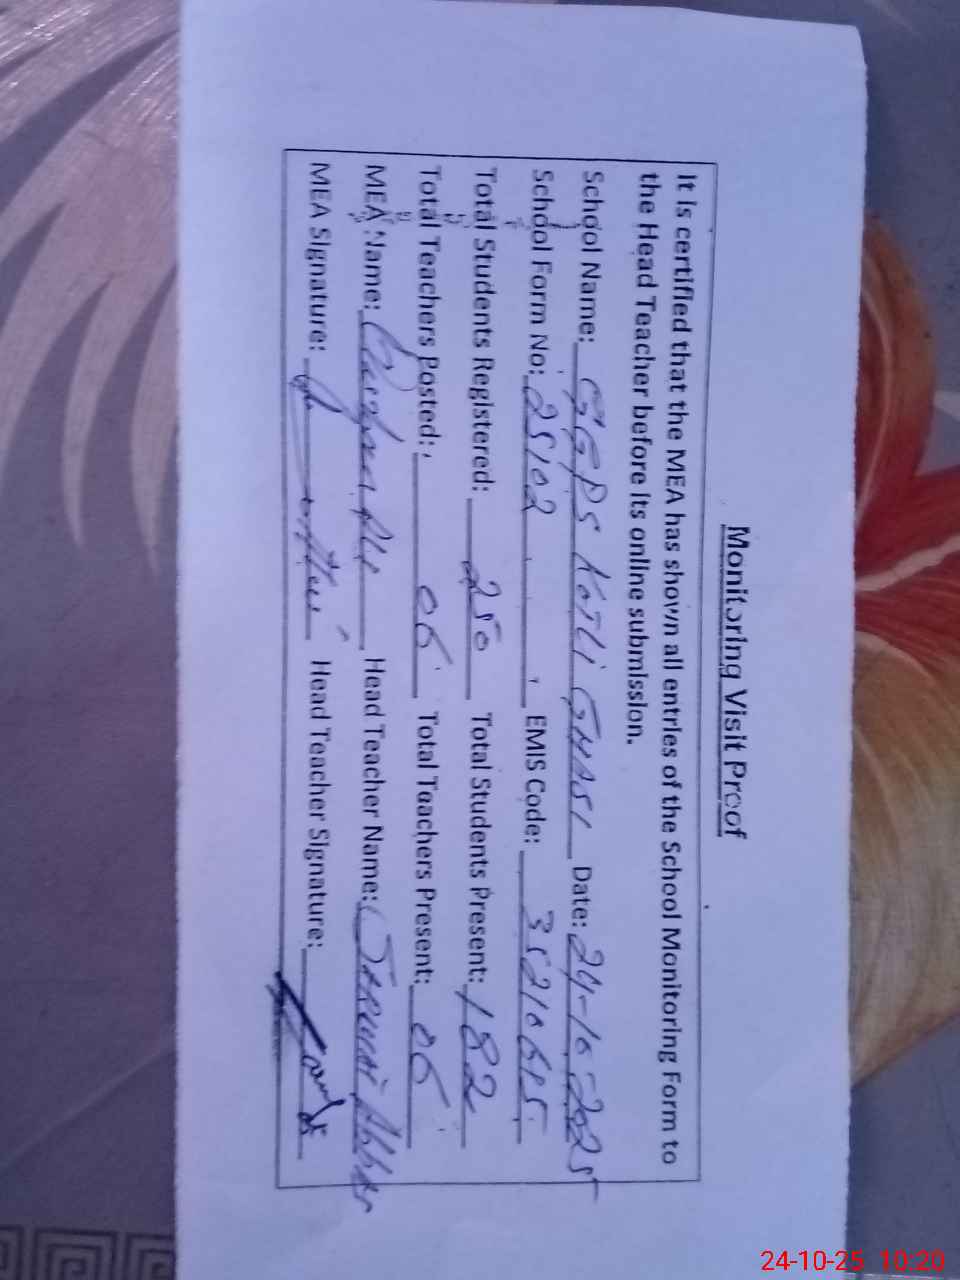 Monitoring Visit Proof
It is certified that the MEA has shown all entries of the School Monitoring Form to
the Head Teacher before its online submission.
School Name: GGPS KOTLI GHASI Date: 24-10-2025
School Form No: 25102 EMIS Code: 35210615
Total Students Registered: 250 Total Students Present: 182
Total Teachers Posted: 06 Total Teachers Present: 06
MEA Name: Head Teacher Name: Abbas
MEA Signature: Head Teacher Signature:
24-10-25 10:20